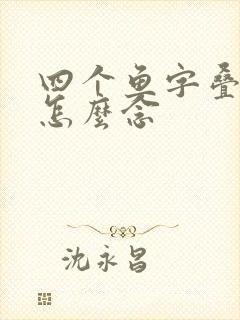 四个鱼字叠
怎麼念
沈永昌